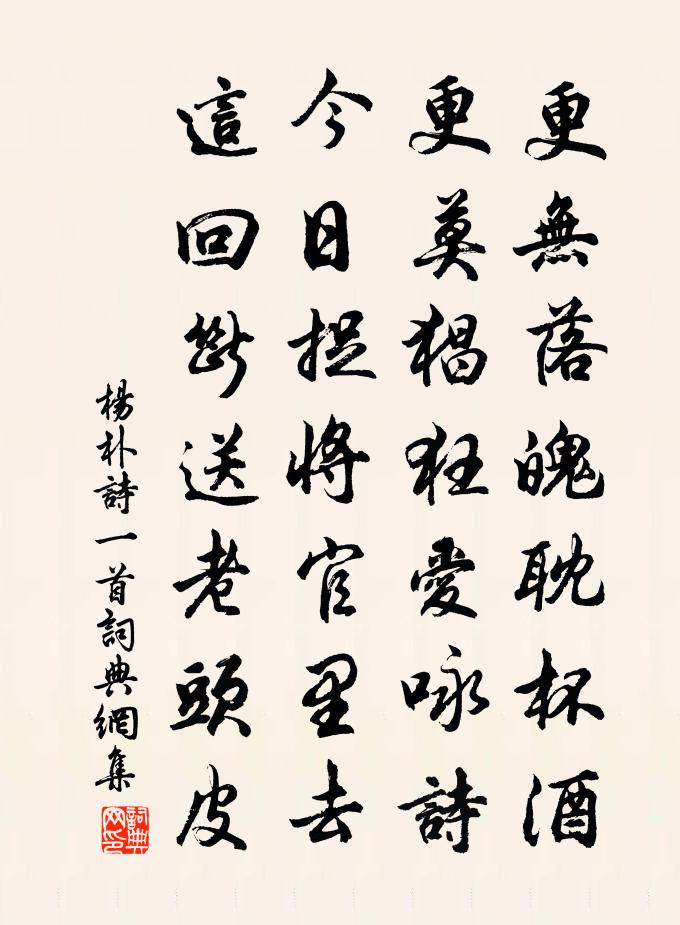 更無落魄耽杯酒
更莫猖狂愛咏詩
今日捉將官里去
這回斷送老頭皮
楊朴詩一首詞典網集
詞典网印